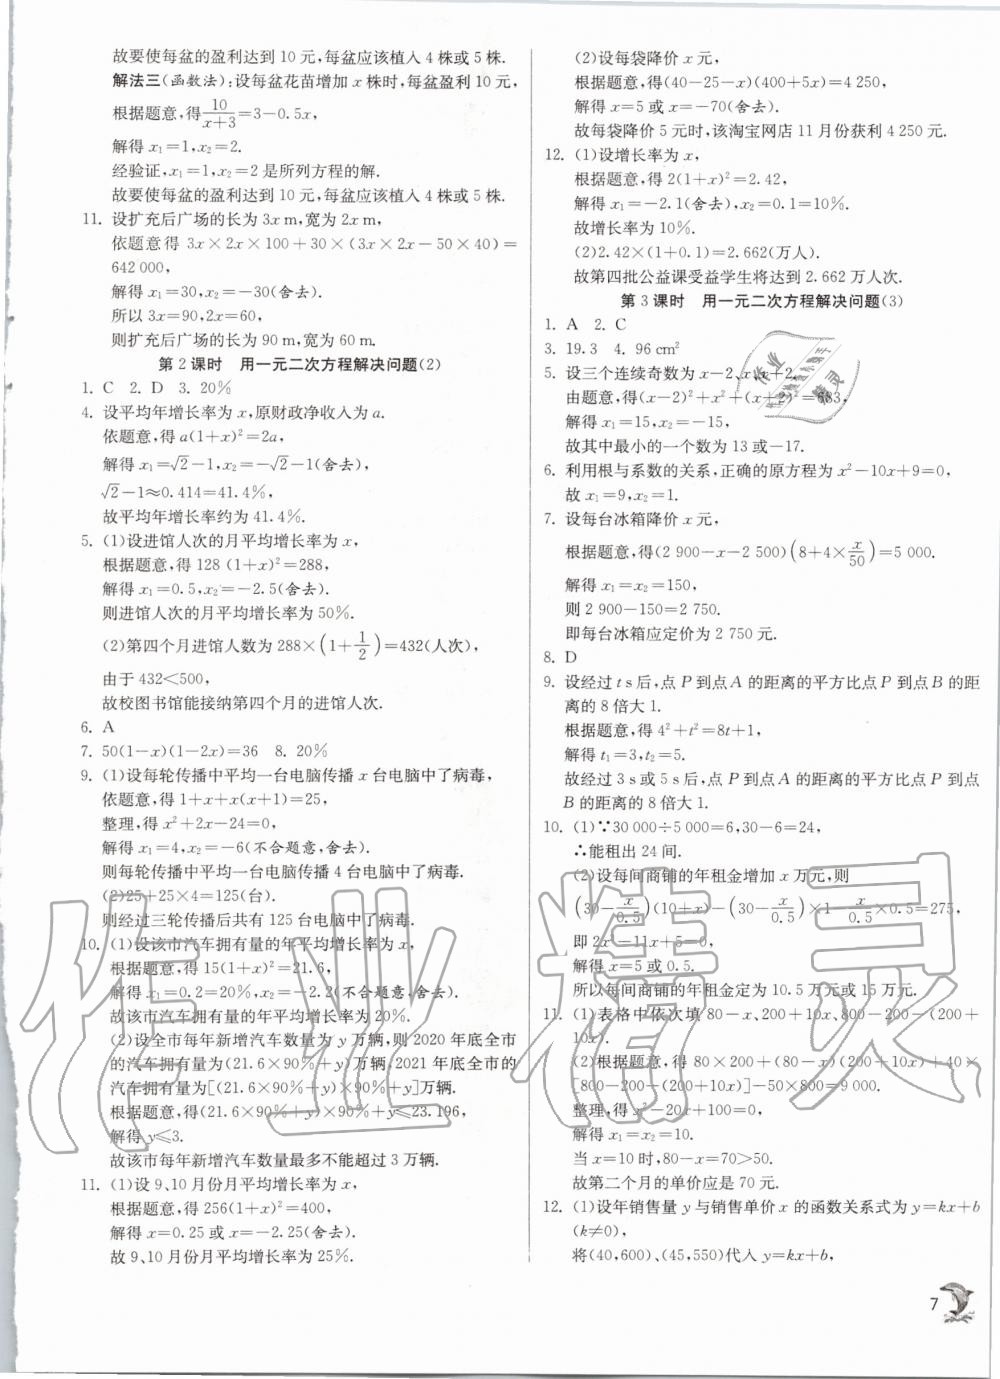 故要使每盆的盈利达到 10 元,每盆应该植入 4 株或 5 株.
解法三(函数法):设每盆花苗增加 x 株时,每盆盈利 10 元,
根据题意,得10/(x+3)=3-0.5x,
解得 x₁=1,x₂=2.
经验证,x₁=1,x₂=2 是所列方程的解.
故要使每盆的盈利达到 10 元,每盆应该植入 4 株或 5 株.
11. 设扩充后广场的长为 3x m,宽为 2x m,
依题意得 3x×2x×100+30×(3x×2x-50×40)=
642 000,
解得 x₁=30,x₂=-30(舍去).
所以 3x=90,2x=60,
则扩充后广场的长为 90 m,宽为 60 m.
第 2 课时 用一元二次方程解决问题(2)
1. C 2. D 3. 20%
4. 设平均年增长率为 x,原财政净收入为 a.
依题意,得 a(1+x)²=2a,
解得 x₁=√2-1,x₂=-√2-1(舍去),
√2-1≈0.414=41.4%,
故平均年增长率约为 41.4%.
5. (1)设进馆人次的月平均增长率为 x,
根据题意,得 128 (1+x)²=288,
解得 x₁=0.5,x₂=-2.5(舍去),
则进馆人次的月平均增长率为 50%.
(2)第四个月进馆人数为 288×(1+1/2)=432(人次),
由于 432<500,
故校图书馆能接纳第四个月的进馆人次.
6. A
7. 50(1-x)(1-2x)=36 8. 20%
9. (1)设每轮传播中平均一台电脑传播 x 台电脑中了病毒,
依题意,得 1+x+x(x+1)=25,
整理,得 x²+2x-24=0,
解得 x₁=4,x₂=-6(不合题意,舍去).
则每轮传播中平均一台电脑传播 4 台电脑中了病毒.
(2)25+25×4=125(台).
则经过三轮传播后共有 125 台电脑中了病毒.
10. (1)设该市汽车拥有量的年平均增长率为 x,
根据题意,得 15(1+x)²=21.6,
解得 x₁=0.2=20%,x₂=-2.2(不合题意,舍去).
故该市汽车拥有量的年平均增长率为 20%.
(2)设全市每年新增汽车数量为 y 万辆,则 2020 年底全市
的汽车拥有量为(21.6×90%+y)万辆,2021 年底全市的
汽车拥有量为[(21.6×90%+y)×90%+y]万辆.
根据题意,得(21.6×90%+y)×90%+y≤23.196,
解得 y≤3.
故该市每年新增汽车数量最多不能超过 3 万辆.
11. (1)设 9、10 月份月平均增长率为 x,
根据题意,得 256(1+x)²=400,
解得 x=0.25 或 x=-2.25(舍去).
故 9、10 月份月平均增长率为 25%.
(2)设每袋降价 x 元,
根据题意,得(40-25-x)(400+5x)=4 250,
解得 x=5 或 x=-70(舍去).
故每袋降价 5 元时,该淘宝网店 11 月份获利 4 250 元.
12. (1)设增长率为 x,
根据题意,得 2(1+x)²=2.42,
解得 x₁=-2.1(舍去),x₂=0.1=10%.
故增长率为 10%.
(2)2.42×(1+0.1)=2.662(万人).
故第四批公益课受益学生将达到 2.662 万人次.
第 3 课时 用一元二次方程解决问题(3)
1. A 2. C
3. 19.3 4. 96 cm²
5. 设三个连续奇数为 x-2、x、x+2,
由题意,得(x-2)²+x²+(x+2)²=683,
解得 x₁=15,x₂=-15,
故其中最小的一个数为 13 或-17.
6. 利用根与系数的关系,正确的原方程为 x²-10x+9=0,
故 x₁=9,x₂=1.
7. 设每台冰箱降价 x 元,
根据题意,得(2 900-x-2 500)(8+4×x/50)=5 000.
解得 x₁=x₂=150,
则 2 900-150=2 750.
即每台冰箱应定价为 2 750 元.
8. D
9. 设经过 t s 后,点 P 到点 A 的距离的平方比点 P 到点 B 的距
离的 8 倍大 1.
根据题意,得 4²+t²=8t+1,
解得 t₁=3,t₂=5.
故经过 3 s 或 5 s 后,点 P 到点 A 的距离的平方比点 P 到点
B 的距离的 8 倍大 1.
10. (1)∵30 000÷5 000=6,30-6=24,
∴能租出 24 间.
(2)设每间商铺的年租金增加 x 万元,则
(30-x/0.5)(10+x)-(30-x/0.5)×1-x/0.5×0.5=275,
即 2x²-11x+5=0,
解得 x=5 或 0.5.
所以每间商铺的年租金定为 10.5 万元或 15 万元.
11. (1)表格中依次填 80-x、200+10x、800-200-(200+
10x).
(2)根据题意,得 80×200+(80-x)(200+10x)+40×
[800-200-(200+10x)]-50×800=9 000.
整理,得 x²-20x+100=0,
解得 x₁=x₂=10.
当 x=10 时,80-x=70>50.
故第二个月的单价应是 70 元.
12. (1)设年销售量 y 与销售单价 x 的函数关系式为 y=kx+b
(k≠0),
将(40,600)、(45,550)代入 y=kx+b,
7
作业精灵